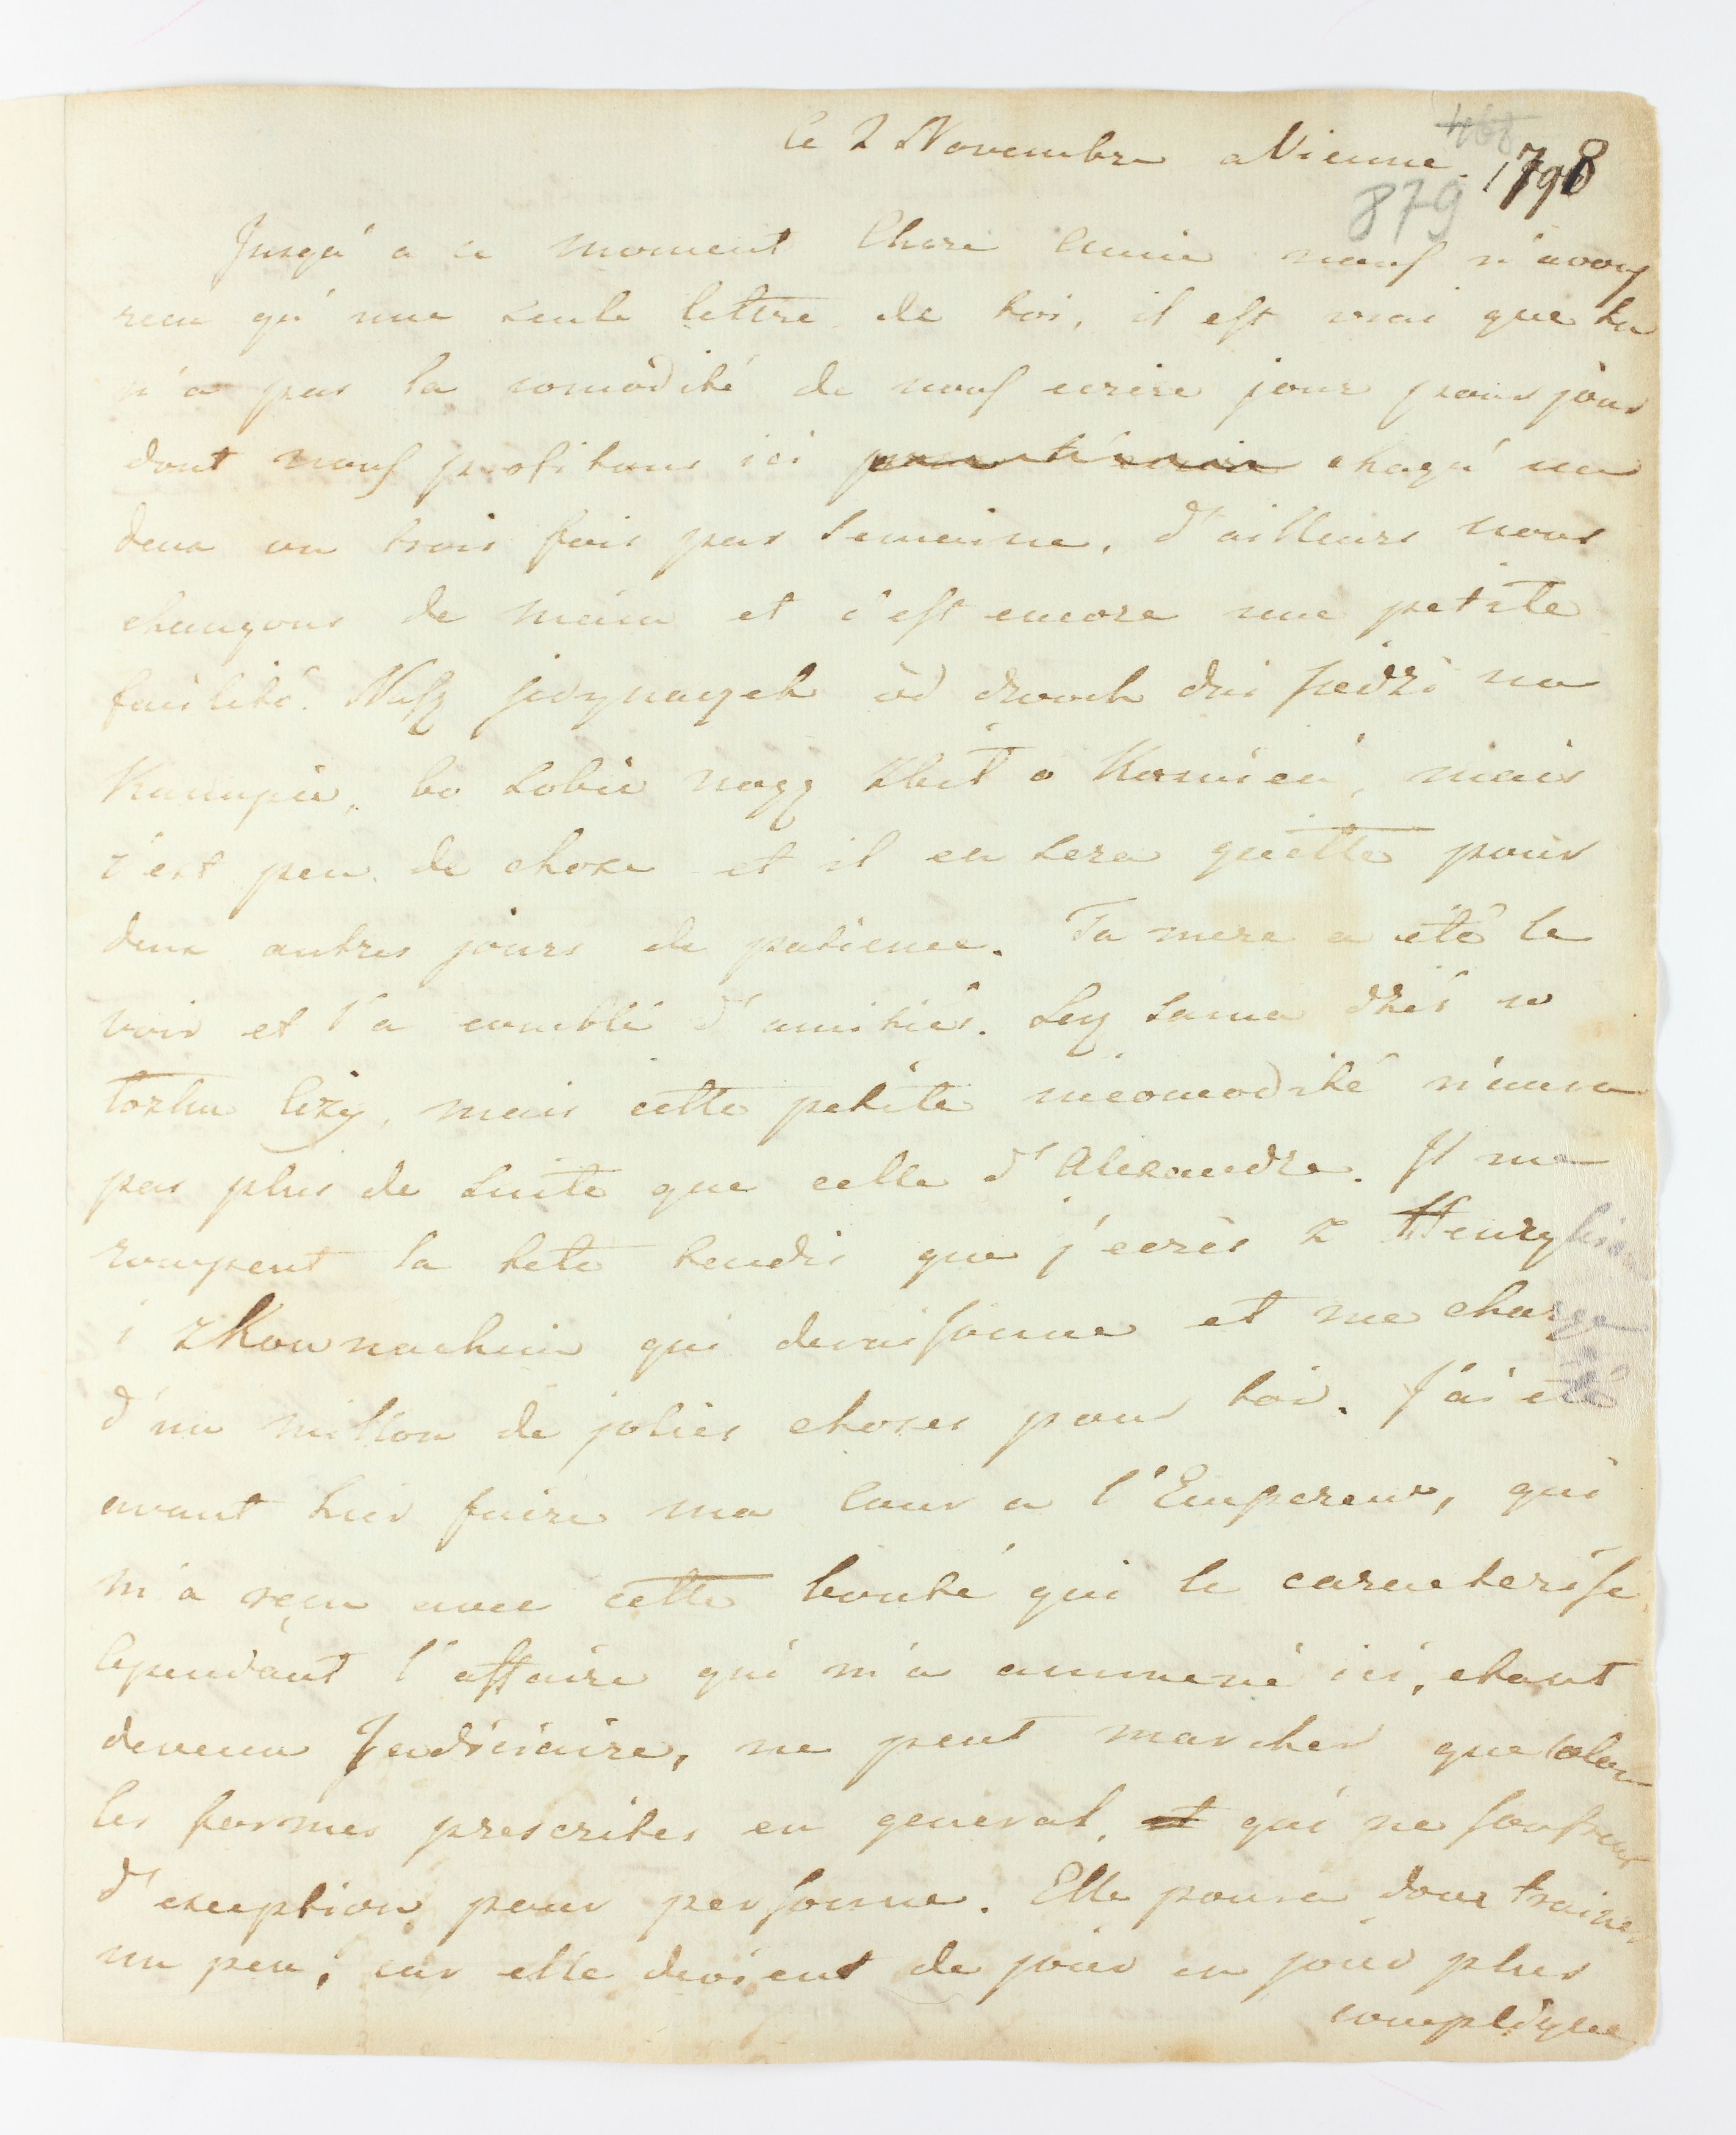 468
le 2 Novembre a Vienne. 1798
879
Jusqu'a ce moment Chere Amie nous n'avons
recu qu'une seule lettre de toi, il est vrai que tu
n'a pas la comodité de nous ecrire jour pour jour
dont nous profitons ici chaqu'un
deux ou trois fois par semaine, d'ailleurs nous
changeons de main et c'est encore une petite
facilité. Nasz jedynaczek od dwoch dni siedzi na
Kanapie, bo sobie nogę zbił o Kamień, mais
c'est peu de chose et il en sera quitte pour
deux autres jours de patience. Ta mere a été le
voir et l'a comblé d'amitiés. Leq sama dziś w
łozku leży, mais cette petite incomodité n'aura
pas plus de suite que celle d'Alexandre. Il me
rompent la tete tendis que j'ecris z Henrysiem
i z Kownackim qui deraisonne et me charge
d'un millon de jolies choses pour toi. J'ai été
avant hier faire ma cour a l'Empereur, qui
m'a reçu avec cette bonté qui le caracterise,
Cependant l'affaire qui m'a ammené ici, etant
devenu Judiciaire, ne peut marcher que selon
les formes prescrites en general, et qui ne soufrent
d'exception pour personne. Elle poura donc trainer
un peu, car elle devient de jour en jour plus
compliquée